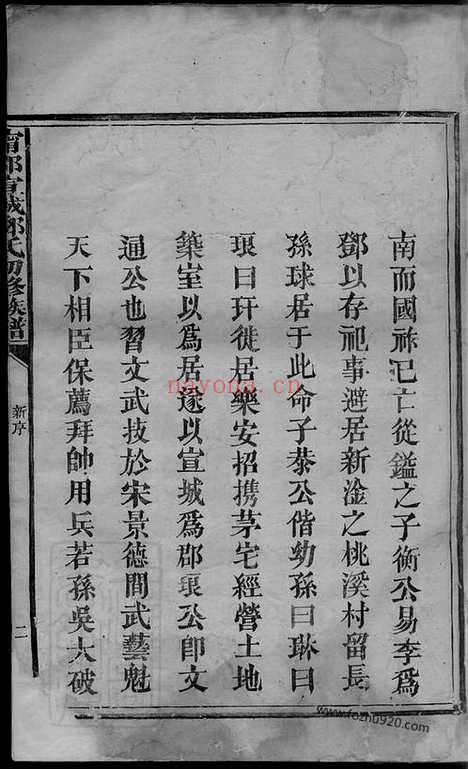 南而國祚已亡從鎰之子衡公易李爲
鄧以存祀事避居新淦之桃溪村留長
孫球居于此命子恭公偕幼孫曰琳曰
珢曰玕徙居樂安招携茅宅經營土地
築室以爲居遂以宣城爲郡珢公即文
通公也習文武技於宋景德間武藝魁
天下相臣保薦拜帥用兵若孫吳大破
甯都宣城鄧氏初修族譜
新序
二
nayona.cn
www.fozhu920.com